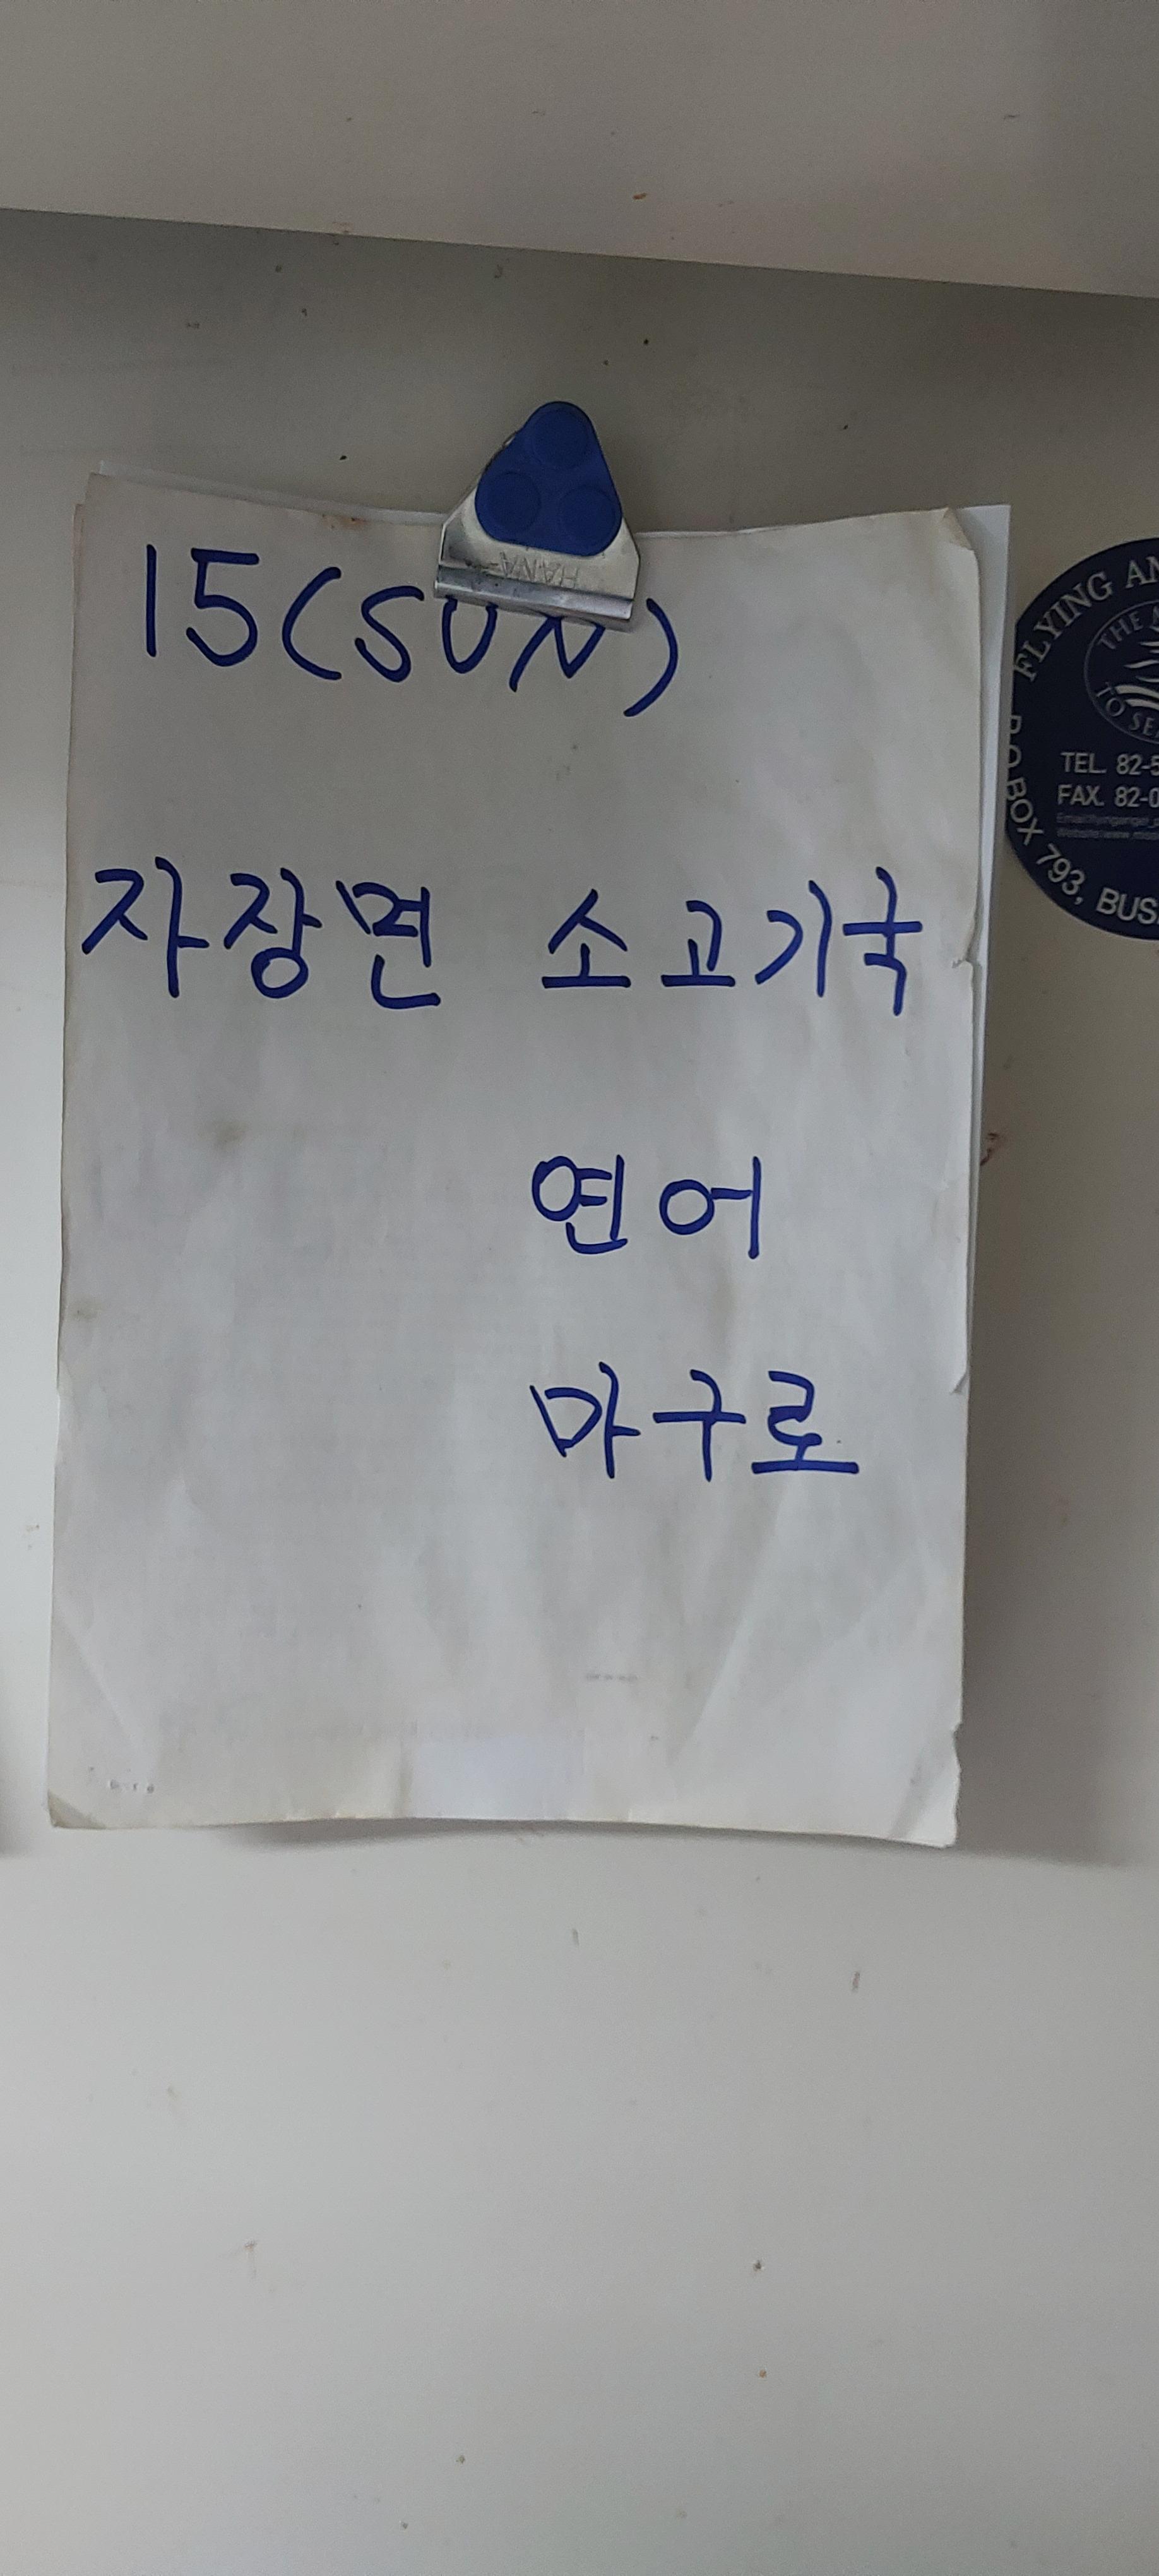 15(SUN)
자장면 소고기국
연어
마구로
HANA
FLYING AN
THE
TO SE
TEL. 82-5
FAX. 82-0
P.O.BOX 793, BUS